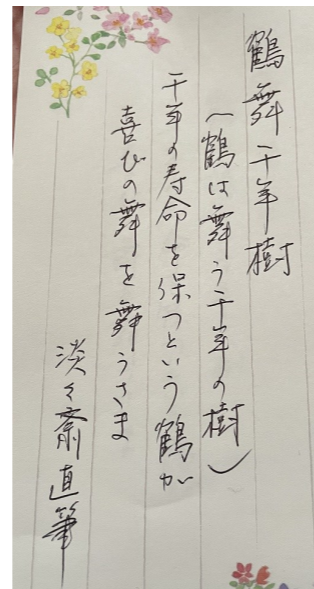 鶴舞千年樹
(鶴は舞う千年の樹)
千年の寿命を保つという鶴が
喜びの舞を舞うさま
淡々斎直筆